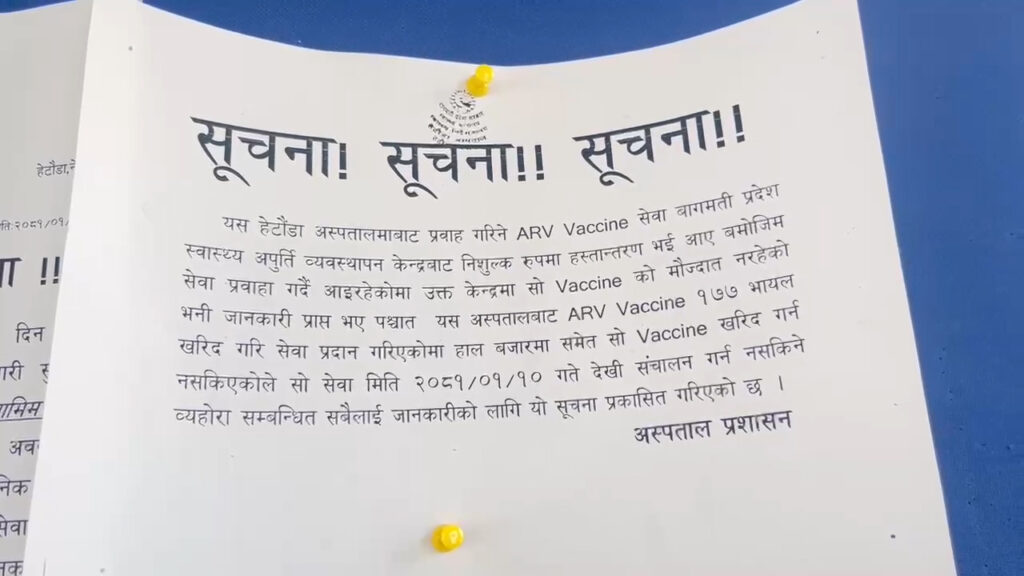 सूचना! सूचना!! सूचना!!
यस हेटौंडा अस्पतालमाबाट प्रवाह गरिने ARV Vaccine सेवा बागमती प्रदेश
स्वास्थ्य अपुर्ति व्यवस्थापन केन्द्रबाट निशुल्क रुपमा हस्तान्तरण भई आए बमोजिम
सेवा प्रवाहा गर्दै आइरहेकोमा उक्त केन्द्रमा सो Vaccine को मौज्दात नरहेको
भनी जानकारी प्राप्त भए पश्चात यस अस्पतालबाट ARV Vaccine १७७ भायल
खरिद गरि सेवा प्रदान गरिएकोमा हाल बजारमा समेत सो Vaccine खरिद गर्न
नसकिएकोले सो सेवा मिति २०८१/०१/१० गते देखी संचालन गर्न नसकिने
व्यहोरा सम्बन्धित सबैलाई जानकारीको लागि यो सूचना प्रकासित गरिएको छ ।
अस्पताल प्रशासन
हेटौंडा,
२०८१/०१/
!!
दिन
सेवा